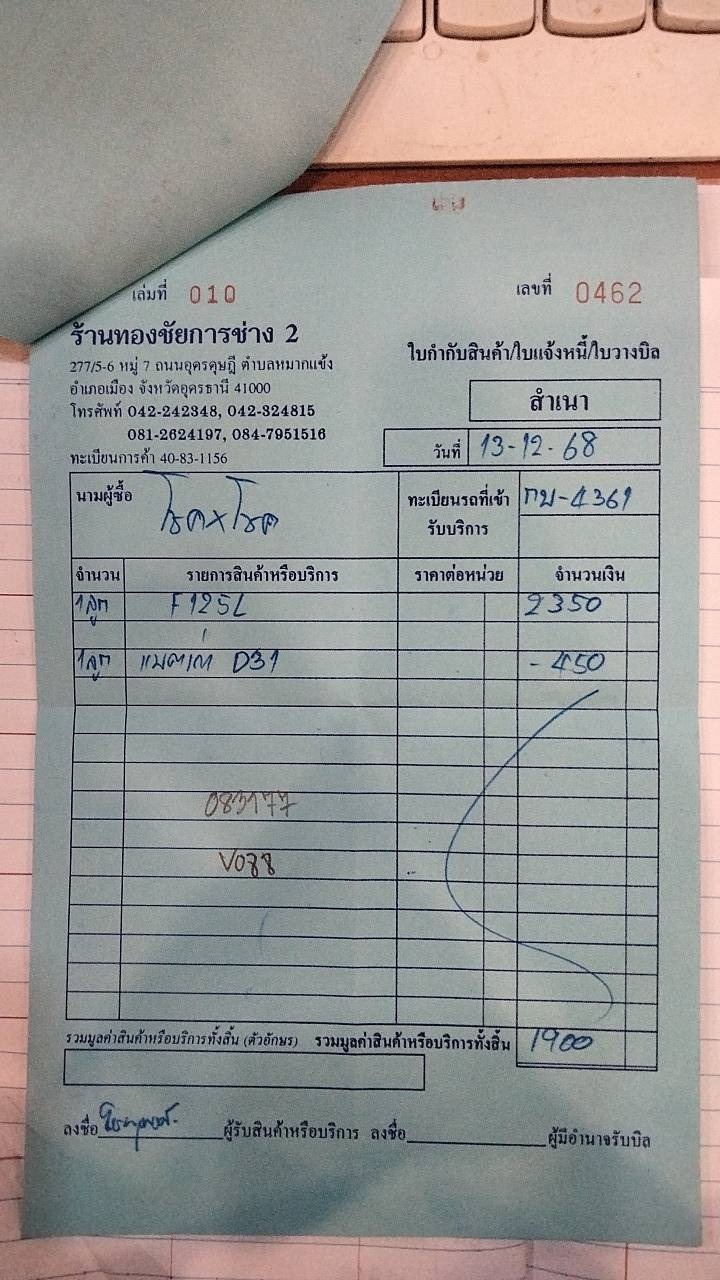 เล่มที่ 010 เลขที่ 0462
ร้านทองชัยการช่าง 2
277/5-6 หมู่ 7 ถนนอุดรดุษฎี ตำบลหมากแข้ง
อำเภอเมือง จังหวัดอุดรธานี 41000
โทรศัพท์ 042-242348, 042-324815
081-2624197, 084-7951516
ทะเบียนการค้า 40-83-1156
ใบกำกับสินค้า/ใบแจ้งหนี้/ใบวางบิล
สำเนา
วันที่ 13-12-68
นามผู้ซื้อ โชคxโชค
ทะเบียนรถที่เข้า กบ-4361
รับบริการ
จำนวน รายการสินค้าหรือบริการ ราคาต่อหน่วย จำนวนเงิน
1ลูก F125L 2350
1ลูก แบตเก่า D31 -450
083177
V088
รวมมูลค่าสินค้าหรือบริการทั้งสิ้น (ตัวอักษร) รวมมูลค่าสินค้าหรือบริการทั้งสิ้น 1900
ลงชื่อ ผู้รับสินค้าหรือบริการ ลงชื่อ ผู้มีอำนาจรับบิล